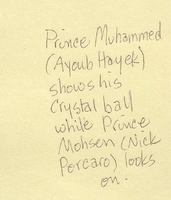 Prince Muhammed
(Ayoub Hayek)
shows his
crystal ball
while Prince
Mohsen (Nick
Porcaro) looks
on.